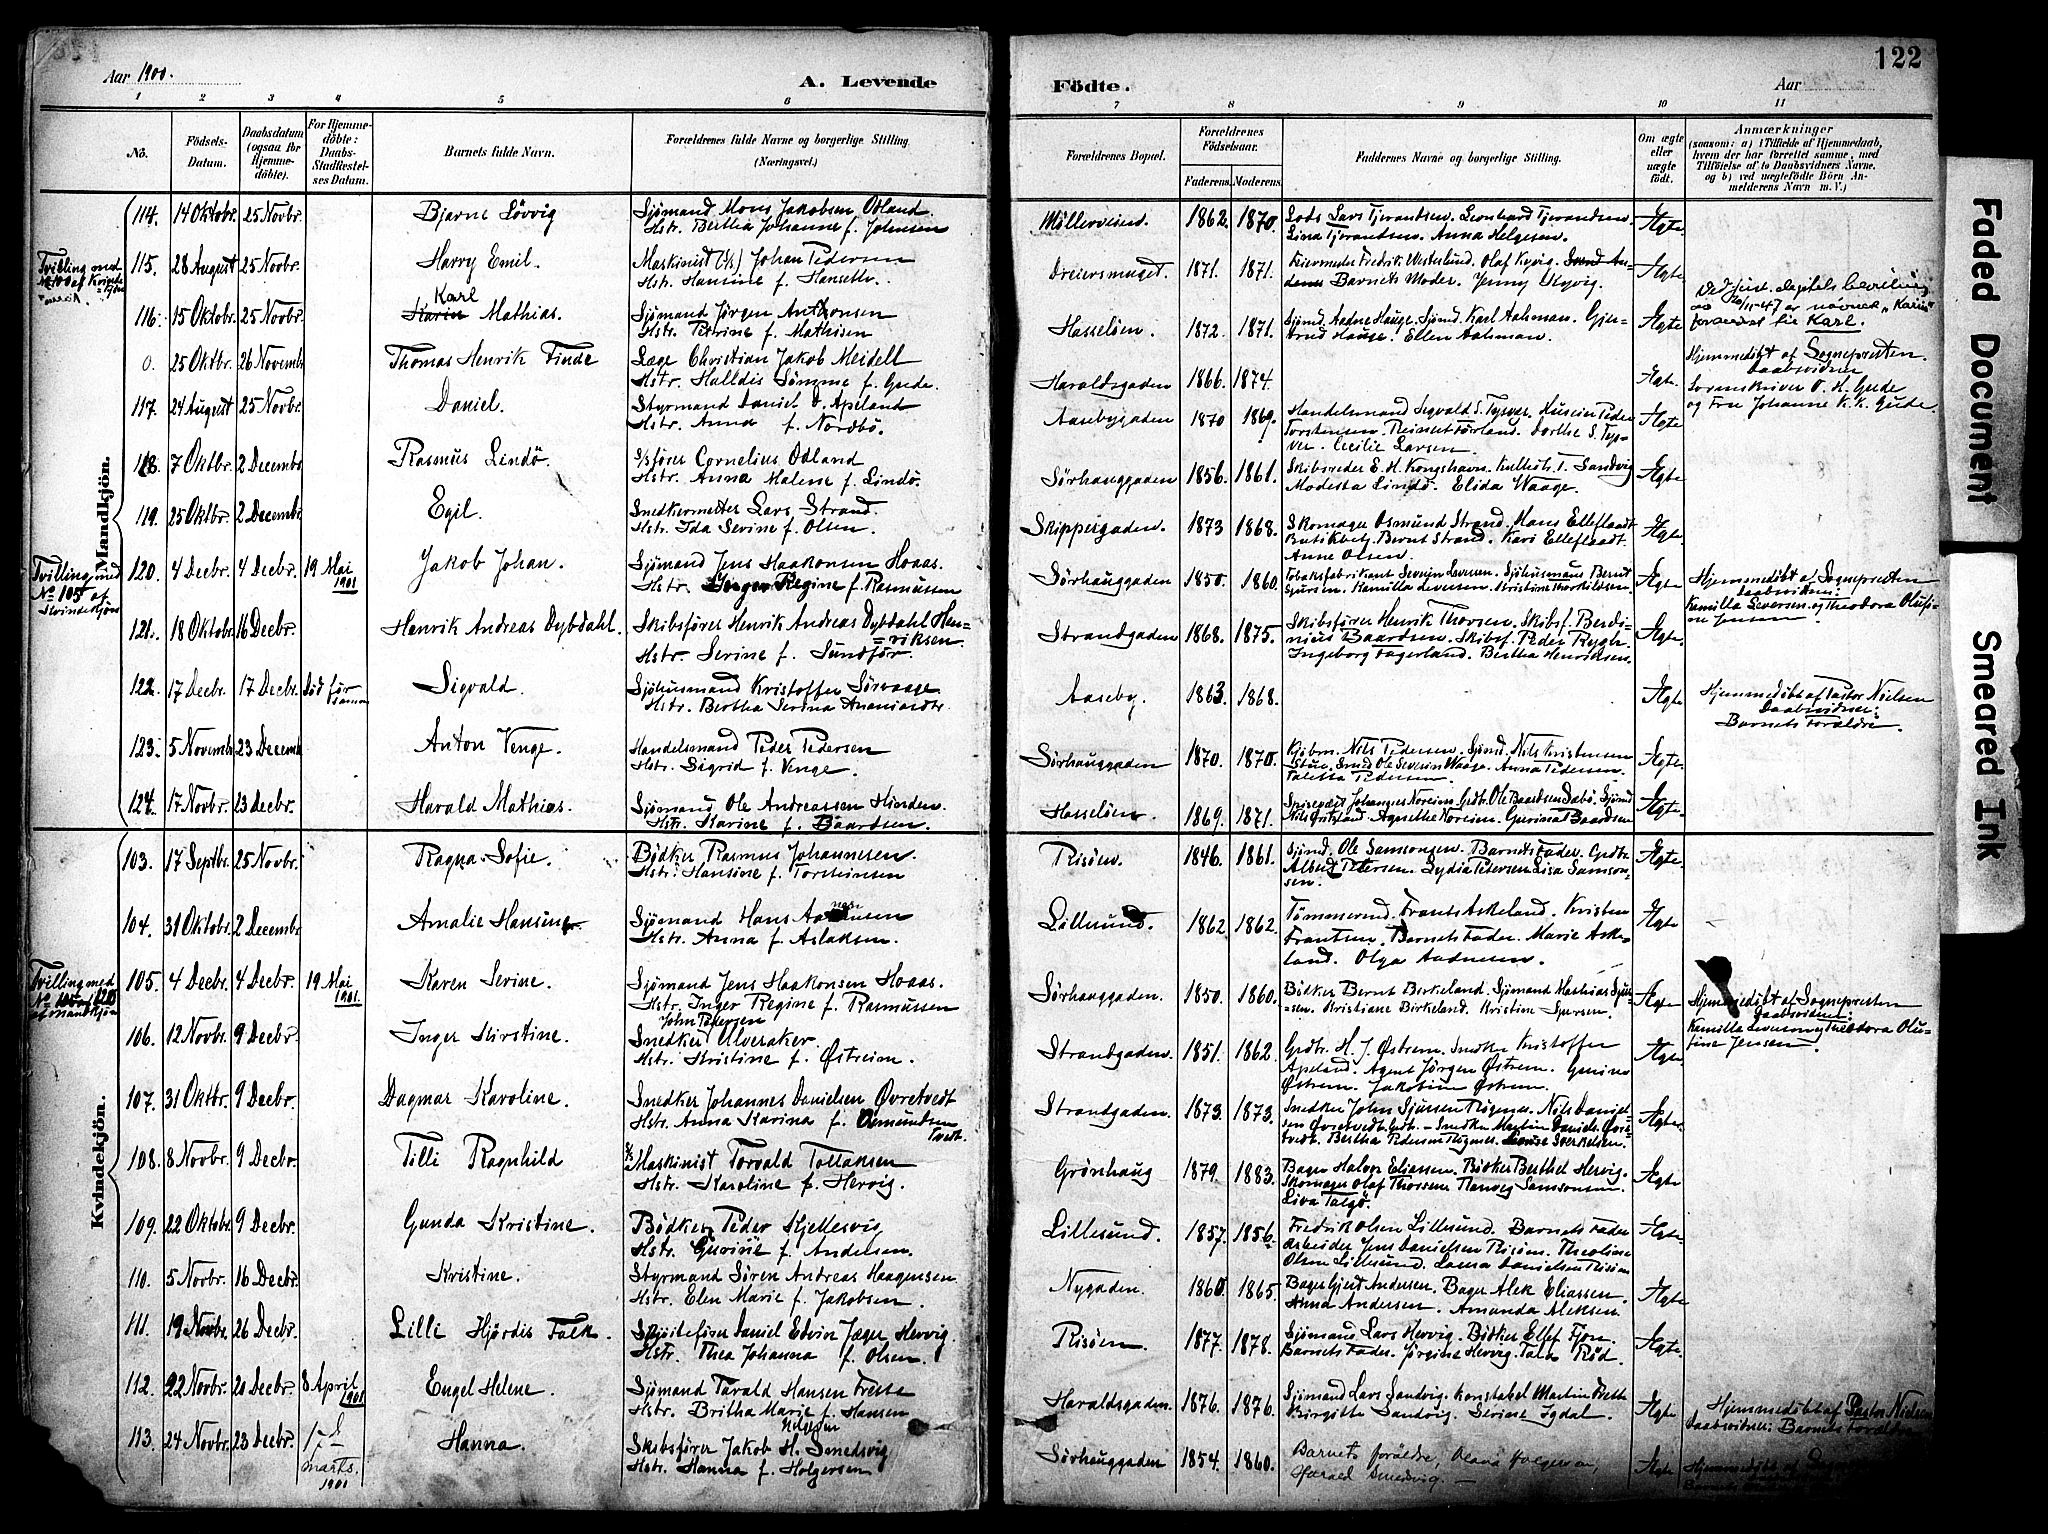 Aar 1900.
A. Levende
Födte.
Aar
122
1 2 3 4 5 6 7 8 9 10 11
No.
Födsels-Datum.
Daabsdatum (ogsaa for Hjemmedöbte).
For Hjemmedöbte: Daabs-Stadfæstelses Datum.
Barnets fulde Navn.
Forældrenes fulde Navne og borgerlige Stilling. (Næringsvei.)
Forældrenes Bopæl.
Forældrenes Födselsaar.
Faderens. Moderens.
Faddernes Navne og borgerlige Stilling.
Om ægte eller uægte födt.
Anmærkninger
(saasom: a) i Tilfælde af Hjemmedaab, hvem der har forrettet samme, med Tilföielse af to Daabsvidners Navne, og b) ved uægtefödte Börn Anmelderens Navn m. V.)
Mandkjön.
114. 14 Oktobr. 25 Novbr. Bjarne Lövvig Sjömand Mons Jakobsen Odland
Hstr. Bertha Johanne f. Johnsen
Möllerveien. 1862. 1870. Lods Lars Tjerandsen. Leonhard Tjerandsen
Lina Tjerandsen. Anna Helgesen. Ægte.
Tvilling med
115. 28 August 25 Novbr. Harry Emil. Maskinist Johan Pedersen
Hstr. Hansine f. Hansen
1871. 1871. Fredrik Westerlund. Olaf Kyvig.
Barnets Moder. Jenny Kyvig. Ægte.
116. 15 Oktobr. 25 Novbr. Karin Karl Mathias. Sjömand Jörgen Antonsen
Hstr. Petrine f. Mathisen
Hasselöen. 1872. 1871. Sjömd. Aadne Hauge. Sjömd. Karl Aahman. Gjertrud Hauge. Ellen Aahman. Ægte
forandret til Karl.
0. 25 Oktbr. 26 Novembr Thomas Henrik Finde Læge Christian Jakob Meidell
Hstr. Halldis Sömme f. Gude.
Haraldsgaden 1866. 1874. Ægte.
Hjemmedöbt af Sognepresten.
Daabsvidner
Sorenskriver O. H. Gude
og Fru Johanne K. K. Gude.
117. 24 August 25 Novbr. Daniel. Styrmand Daniel O. Apeland
Hstr. Anna f. Nordbö.
Aasebygaden 1870 1869. Handelsmand Sigvald S. Tysver. Huseier Peder
Torstensen. Reinert Förland. Dorthe S. Tysver. Cecilie Larsen. Ægte
118. 7 Oktbr. 2 Decembr Rasmus Lindö. S/sförer Cornelius Odland
Hstr. Anna Malene f. Lindö.
Sörhauggaden 1856. 1861. Skibsreder E. H. Kongshavn. T. Sandvig
Modesta Lindö. Elida Waage. Ægte
119. 25 Oktbr. 2 Decembr Egil. Snedkermester Lars Strand.
Hstr. Ida Serine f. Olsen.
Skippergaden. 1873 1868. Skomager Osmund Strand. Hans Elleflaadt
Bernt Strand. Kari Elleflaadt.
Anne Olsen. Ægte.
Tvilling med No 105 af Kvindekjön
120. 4 Decbr. 4 Decbr. 19 Mai 1901 Jakob Johan. Sjömand Jens Haakonsen Hoaas.
Hstr. Inger Regine f. Rasmussen
Sörhauggaden 1850. 1860. Tobaksfabrikant Severin Seversen. Sjöhusmand Bernt
Sjursen. Kamilla Seversen. Kristine Thorkildsen. Ægte.
Hjemmedöbt af Sognepresten
Daabsvidner:
Kamilla Seversen og Theodora Olufine Jensen.
121. 18 Oktobr. 16 Decbr. Henrik Andreas Dybdahl. Skibsförer Henrik Andreas Dybdahl Henriksen.
Hstr. Serine f. Sundför
Strandgaden 1868. 1875. Skibsförer Henrik Thorsen. Skibsf. Berdinius Baardsen. Skibsf. Peder Rygh.
Ingeborg Fagerland. Bertha Henriksen. Ægte.
122. 17 Decbr. 17 Decbr. Död för Sigvald. Sjöhusmand Kristoffer Sörvaage
Hstr. Bertha Serina Ananiasdtr.
Aaseby. 1863. 1868. Ægte.
Hjemmedöbt af Pastor Nielsen
Daabsvidner:
Barnets Forældre
123. 5 Novembr 23 Decemb Anton Venge. Handelsmand Peder Pedersen
Hstr. Sigrid f. Venge.
Sörhauggaden 1870. 1870. Kjöbm. Nils Pedersen. Sjömd. Nils Kristensen
Smed Ole Severin Waage. Anna Pedersen.
Taletta Pedersen. Ægte.
124. 17 Novbr. 23 Decbr. Harald Mathias. Sjömand Ole Andreassen Hinden.
Hstr. Karine f. Baardsen.
Hasselöen. 1869. 1871. Johannes Noreim. Grdbr. Ole Baardsen Sæbö. Sjömd
Agnethe Noreim. Gurina Baardsen Ægte.
Kvindekjön.
103. 17 Septbr. 25 Novbr. Ragna Sofie. Bödker Rasmus Johannesen.
Hstr. Hansine f. Torsteinsen
Risöen. 1846. 1861. Sjömd. Ole Samsonsen. Barnets Fader. Grdbr.
Albert Petersen. Lydia Petersen. Lisa Samsonsen. Ægte.
104. 31 Oktobr. 2 Decembr Amalie Hansine Sjömand Hans
Hstr. Anna f. Aslaksen.
Lillesund. 1862 1862. Tömmermd. Frants Askeland. Kristen
Frantsen. Barnets Fader. Marie Askeland. Olga Andresen. Ægte
Tvilling med No 120 af Mandkjön
105. 4 Decbr. 4 Decbr. 19 Mai 1901. Karen Serine. Sjömand Jens Haakonsen Hoaas.
Hstr. Inger Regine f. Rasmussen
Sörhauggaden. 1850. 1860. Bödker Bernt Birkeland. Sjömand Mathias Sjursen. Kristiane Birkeland. Kristine Sjursen. Ægte
Hjemmedöbt af Sognepresten
Daabsvidner:
Kamilla Seversen og Theodora Olufine Jensen.
106. 12 Novbr. 9 Decbr. Inger Kirstine. John Pedersen
Snedker Alveraker.
Hstr. Kristine f. Östreim.
Strandgaden. 1851. 1862. Grdbr. H. J. Östrem. Snedker Kristoffer
Apeland. Agent Jörgen Östrem. Gurine
Östrem. Jakobine Östrem. Ægte.
107. 31 Oktbr. 9 Decbr. Dagmar Karoline. Snedker Johannes Danielsen Övretvedt
Hstr. Anna Karina f. Osmundsen Tvedt.
Strandgaden. 1873. 1873. Snedker John Sjursen Rögenes. Nils Danielsen Övretvedt Grdbr. Snedker Martin Daniels. Övretvedt. Bertha Pedersen Rögenes. Sverkelsen. Ægte.
108. 8 Novbr. 9 Decbr. Tilli Ragnhild S/S Maskinist Torvald Tollaksen
Hstr. Karoline f. Hervig.
Grönhaug 1879. 1883. Bager Halvor Eliassen. Bödker Berthel Hervig.
Skomager Olaf Thorsen. Ranveg Samsonsen.
Liva Talgö. Ægte
109. 22 Oktobr. 9 Decbr. Gunda Kristine. Bödker Peder Kjellesvig
Hstr. Gurine f. Andersen.
Lillesund. 1857. 1856. Fredrik Olsen Lillesund. Barnets Fader
Arbeider Jens Danielsen Risöen. Theoline
Olsen Lillesund. Laura Danielsen Risöen Ægte.
110. 5 Novbr. 16 Decbr. Kristine. Styrmand Sören Andreas Haagensen
Hstr. Elen Marie f. Jakobsen.
Nygaden. 1860. 1865. Bager Gjert Andersen. Bager Alek Eliassen.
Anna Andersen. Amanda Aleksen. Ægte
111. 19 Novbr 26 Decbr. Lilli Hjördis Falk. Sköiteförer Daniel Edvin Jæger Hervig.
Hstr. Thea Johanna f. Olsen.
Risöen. 1877. 1878. Sjömand Lars Hervig. Bödker Ellef Fjon.
Barnets Fader. Jörgine Hervig. Röd. Ægte.
112. 22 Novbr. 20 Decbr. 8 April 1901 Engel Helene. Sjömand Tarald Hansen Trette
Hstr. Britha Marie f. Hansen
Haraldsgaden. 1876. 1876. Sjömand Lars Sandvig. Konstabel Martin
Birgitte Sandvig. Serine Igdal. Ægte
Hjemmedöbt af Pastor Nielsen
Daabsvidner: Barnets Forældre
113. 24 Novbr. 23 Decbr. marts. 1901 Hanna. Skibsförer Jakob H. Smedsvig
Hstr. Hanna f. Holgersen
Sörhauggaden 1854. 1860. Barnets forældre, Olava Holgersen,
Harald Smedsvig. Ægte
Hjemmedöbt af
Faded Document
Smeared Ink